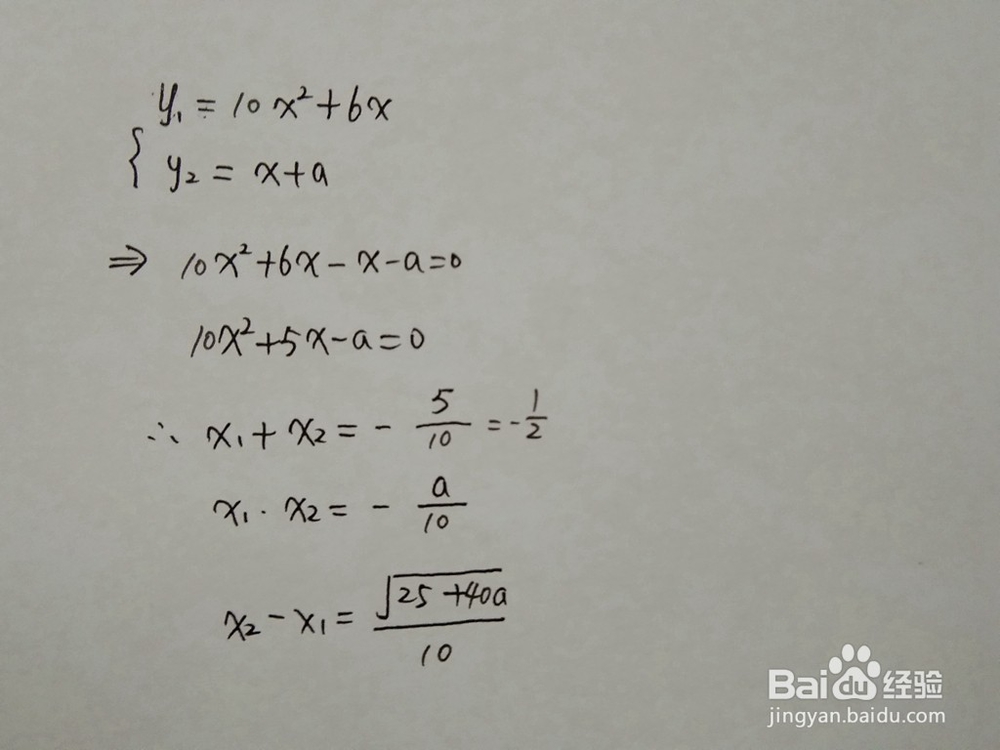 y₁ = 10x²+6x
{ y₂ = x+a
⇒ 10x²+6x-x-a=0
10x²+5x-a=0
∴ x₁+x₂ = - 5/10 = -1/2
x₁·x₂ = - a/10
x₂-x₁ = √(25+40a)/10
Baidu经验
jingyan.baidu.com